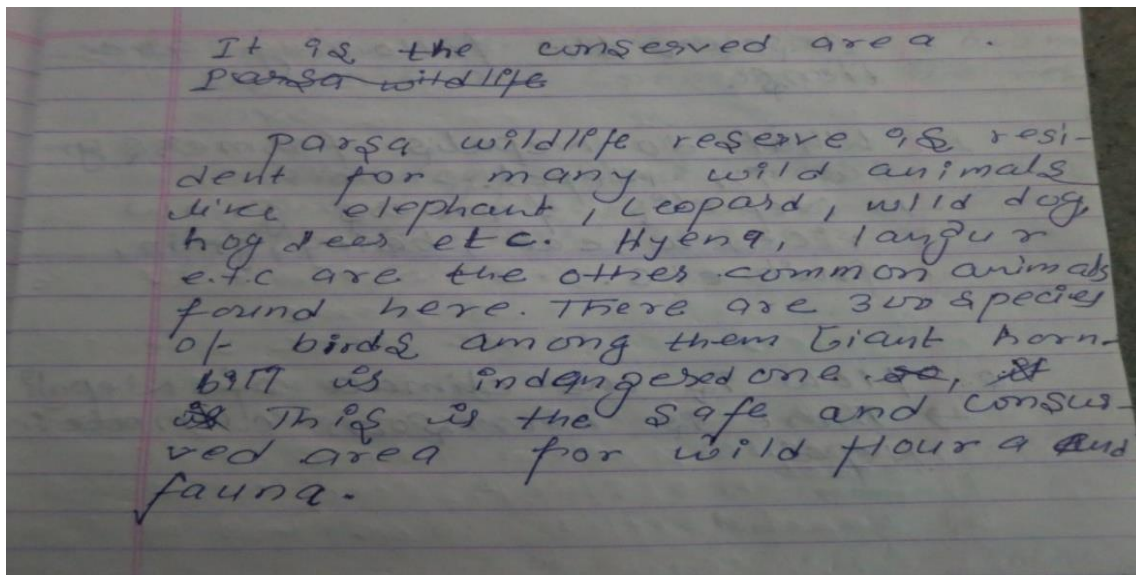 It is the conserved area .
Parsa wildlife
Parsa wildlife reserve is resi-
dent for many wild animals
like elephant, Leopard, wild dog,
hog deer etc. Hyena, langur
e.t.c are the other common animals
found here. There are 300 species
of birds among them Giant horn-
bill is indangered one. so, it
is This is the safe and consur-
ved area for wild floura and
fauna.